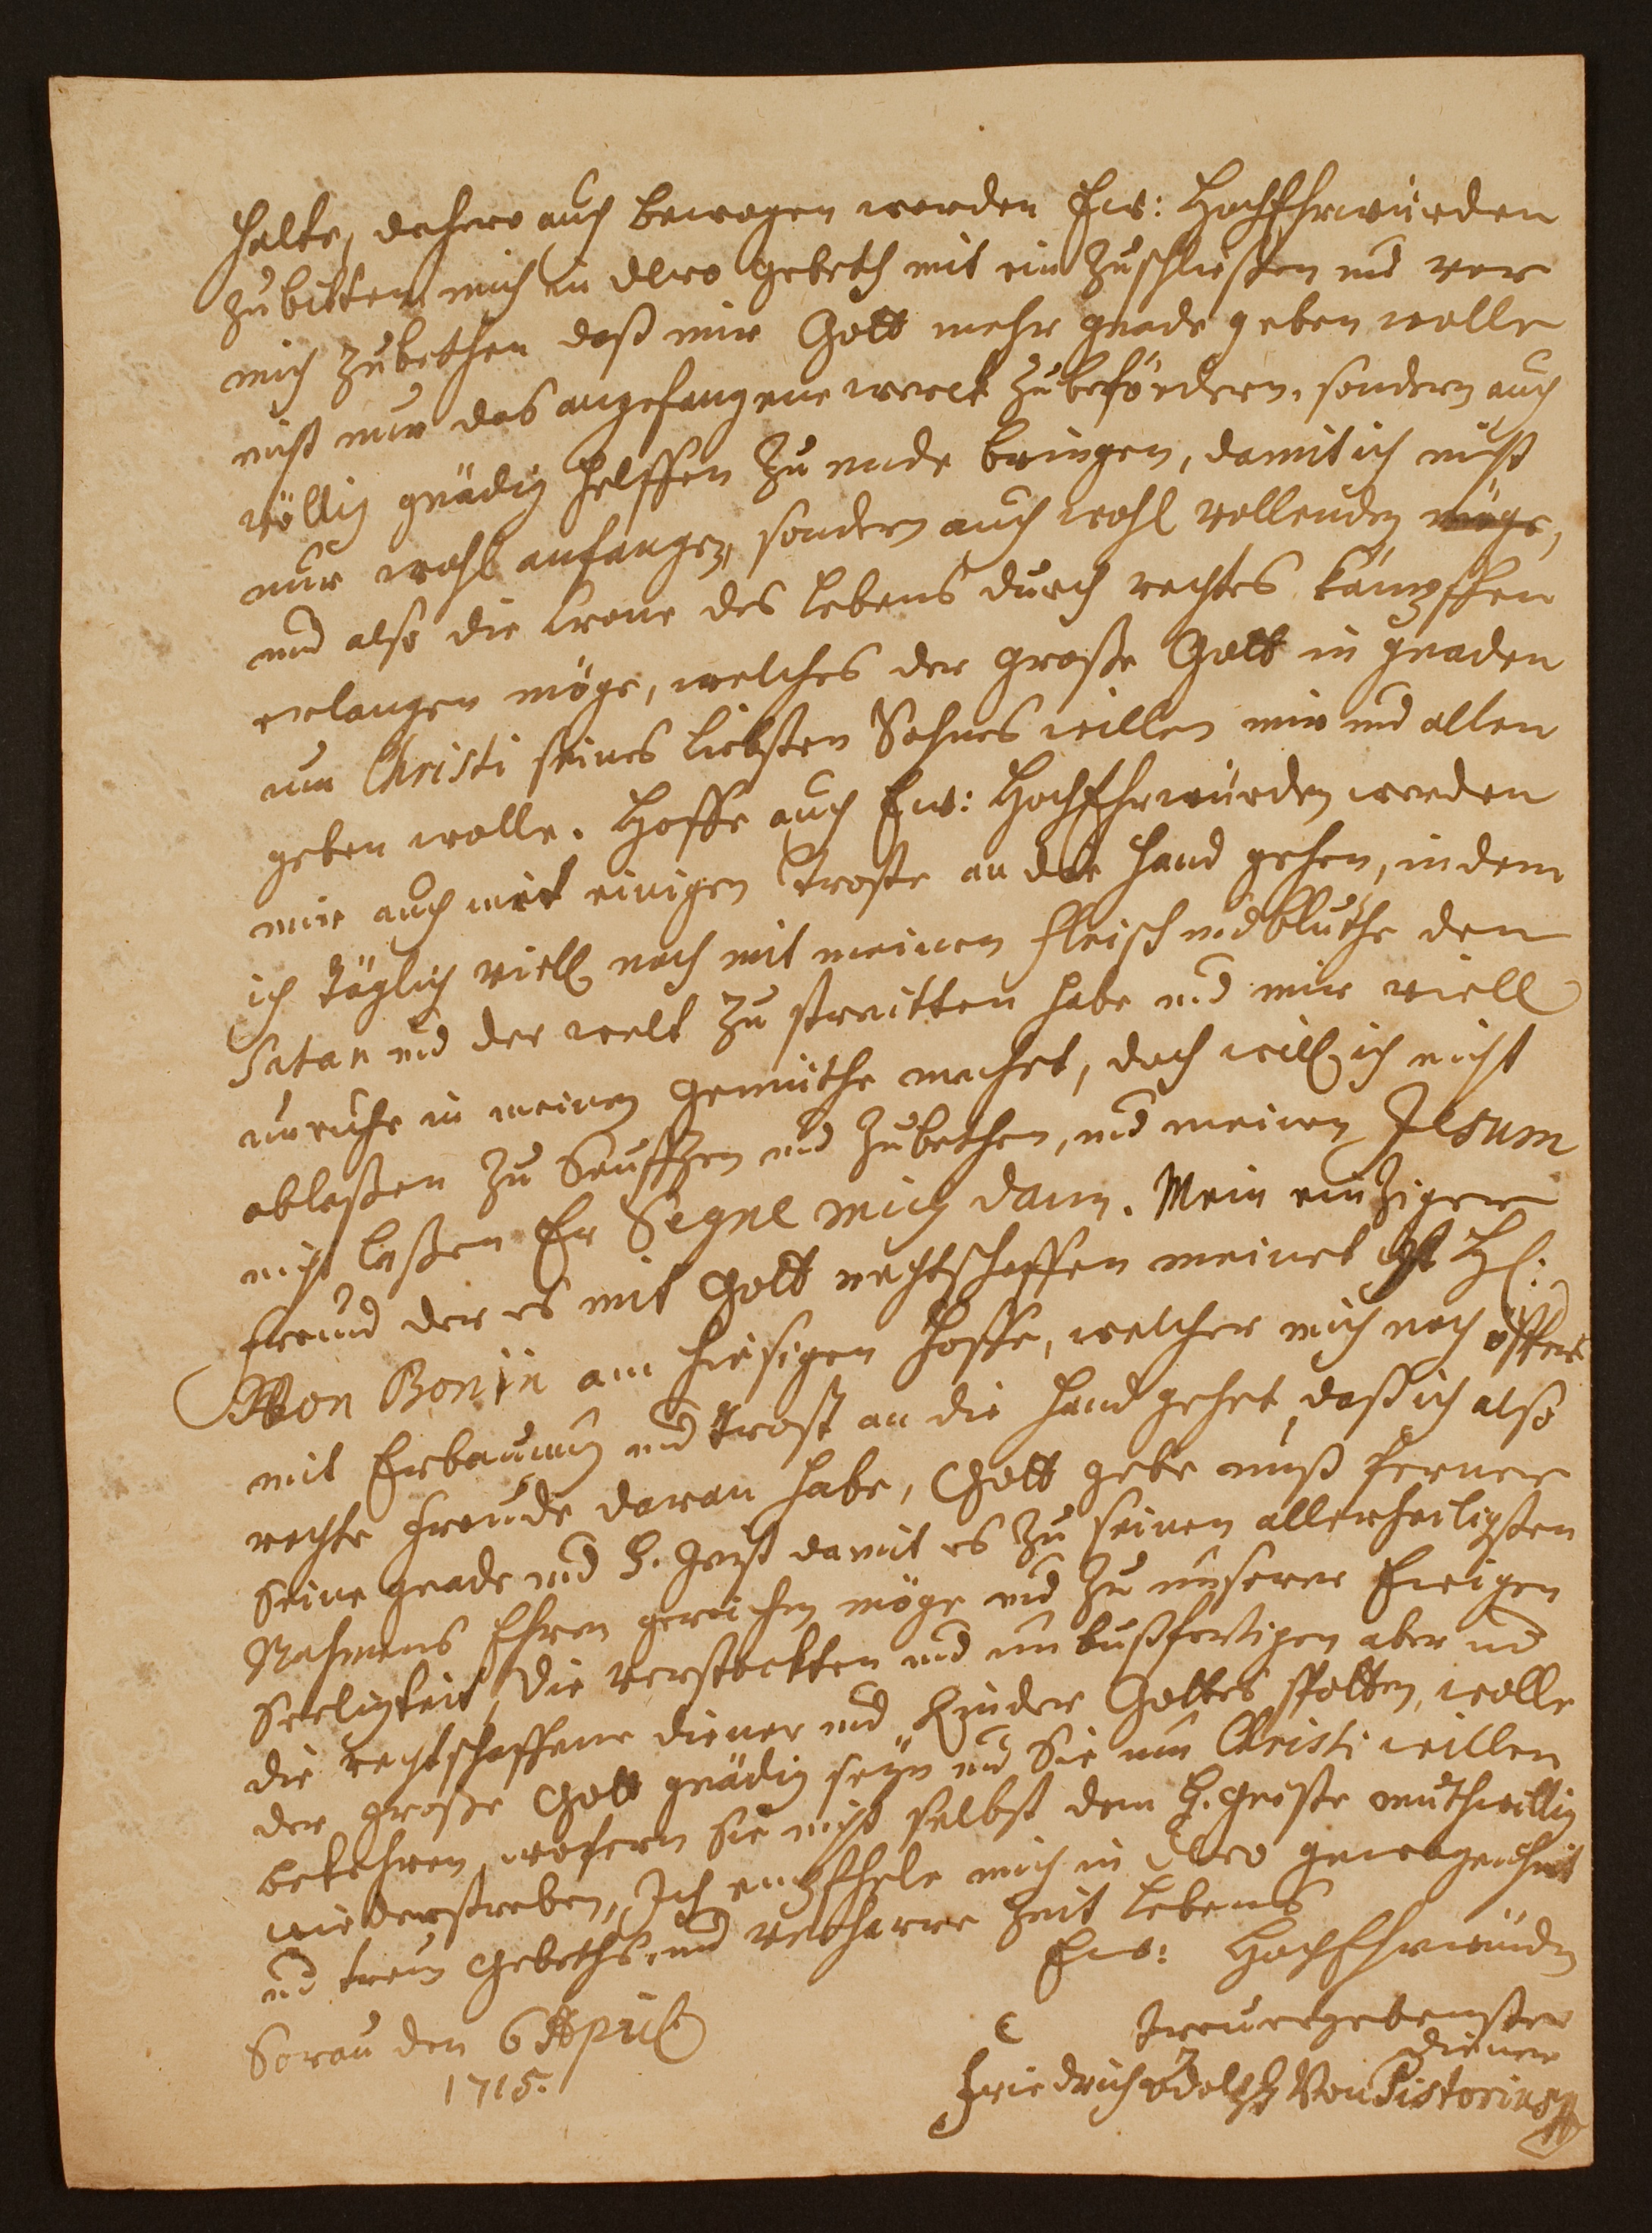 halte, dahero auch bewogen worden Ew: HochEhrwürden
zubitten mich in dero gebeth mit ein zuschließen und vor
mich zubethen daß mir Gott mehr gnade geben wolle
nicht nur das angefangene werck zubefördern, sondern auch
völlig gnädig helffen zu ende bringen, damit ich nicht
nur wohl anfangen, sondern auch wohl vollenden möge,
und also die krone des lebens durch rechtes kämpffen
erlangen möge, welches der große Gott in gnaden
um Christi seines liebsten Sohnes willen mir und allen
geben wolle. Hoffe auch Ew: HochEhrwürden werden
mir auch mit einigen troste an der hand gehen, indem
ich täglich viell noch mit meinen fleisch und bluthe den
Satan und der welt zu streitten habe und mir viell
unruhe in meinen gemüthe machet, doch will ich nicht
ablaßen zu Seuffzen und zubethen, und meinen Jesum
nicht laßen Er Segne mich dann. Mein einziger
freund der es mit Gott rechtschaffen meinet ist H:
Von Bonin am hiesigen hoffe, welcher mich noch öffters
mit Erbauung und trost an die hand gehet, daß ich also
rechte freude daran habe, Gott gebe unß ferner
Seine gnade und H. Geist damit es zu seinen allerheiligsten
Nahmens Ehren gereichen möge und zu unserer Ewigen
Seeligkeit, die verstockten und unbußfertigen aber und
die rechtschaffene diener und Kinder Gottes spotten, wolle
der große Gott gnädig seyn und Sie um Christi willen
bekehren, wofern Sie nicht selbst dem H. Geiste muthwillig
wiederstreben, Ich empfehle mich in dero gewogenheit
und treuen Gebeth und verharre zeit lebens
Ew: HochEhrwürden
Sorau den 6 April
1715.
treuergebenster
diener
Friedrich Adolph Von Pistorius